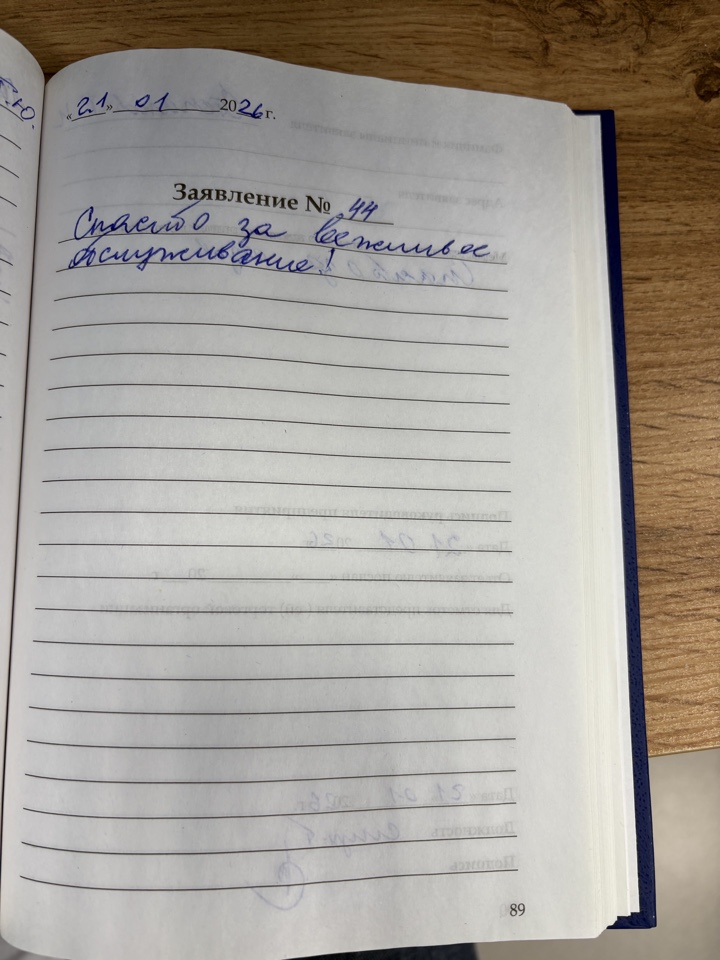 Т.Ю.
«21» 01 2026 г.
Заявление № 44
Спасибо за вежливое
обслуживание!
89